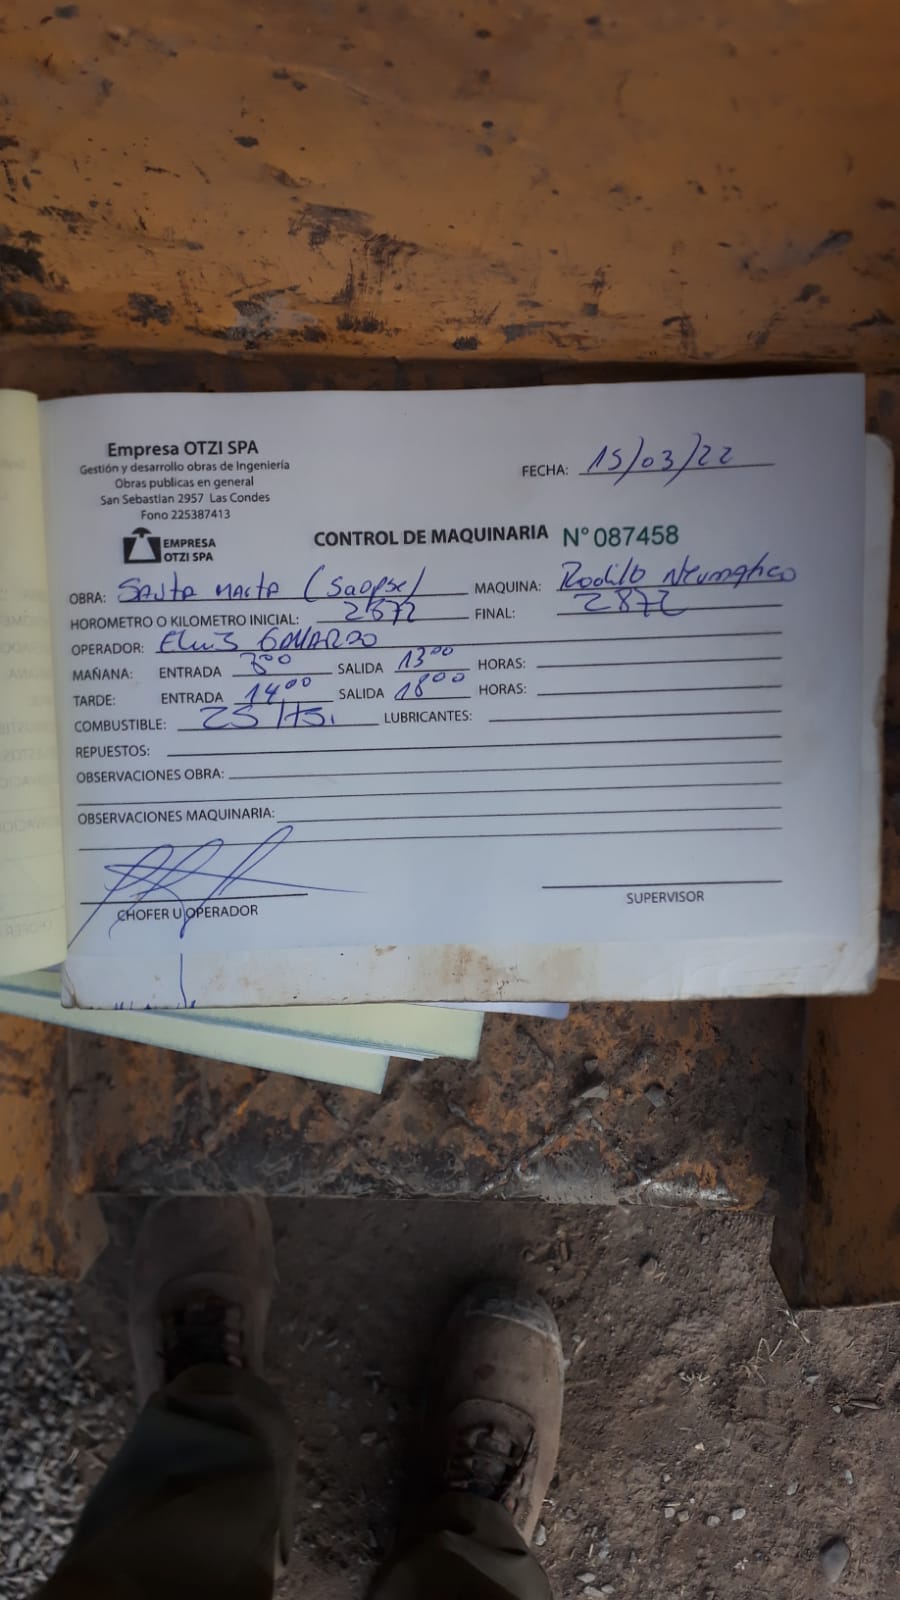 Empresa OTZI SPA
Gestión y desarrollo obras de Ingeniería
Obras publicas en general
San Sebastian 2957 Las Condes
Fono 225387413
EMPRESA
OTZI SPA
FECHA: 15/03/22
CONTROL DE MAQUINARIA N° 087458
OBRA: Santa Marta MAQUINA: Rodillo Neumatico
HOROMETRO O KILOMETRO INICIAL: FINAL: 2872
OPERADOR:
MAÑANA: ENTRADA SALIDA 13⁰⁰ HORAS:
TARDE: ENTRADA 14⁰⁰ SALIDA 18⁰⁰ HORAS:
COMBUSTIBLE: 25 lts. LUBRICANTES:
REPUESTOS:
OBSERVACIONES OBRA:
OBSERVACIONES MAQUINARIA:
CHOFER U OPERADOR
SUPERVISOR